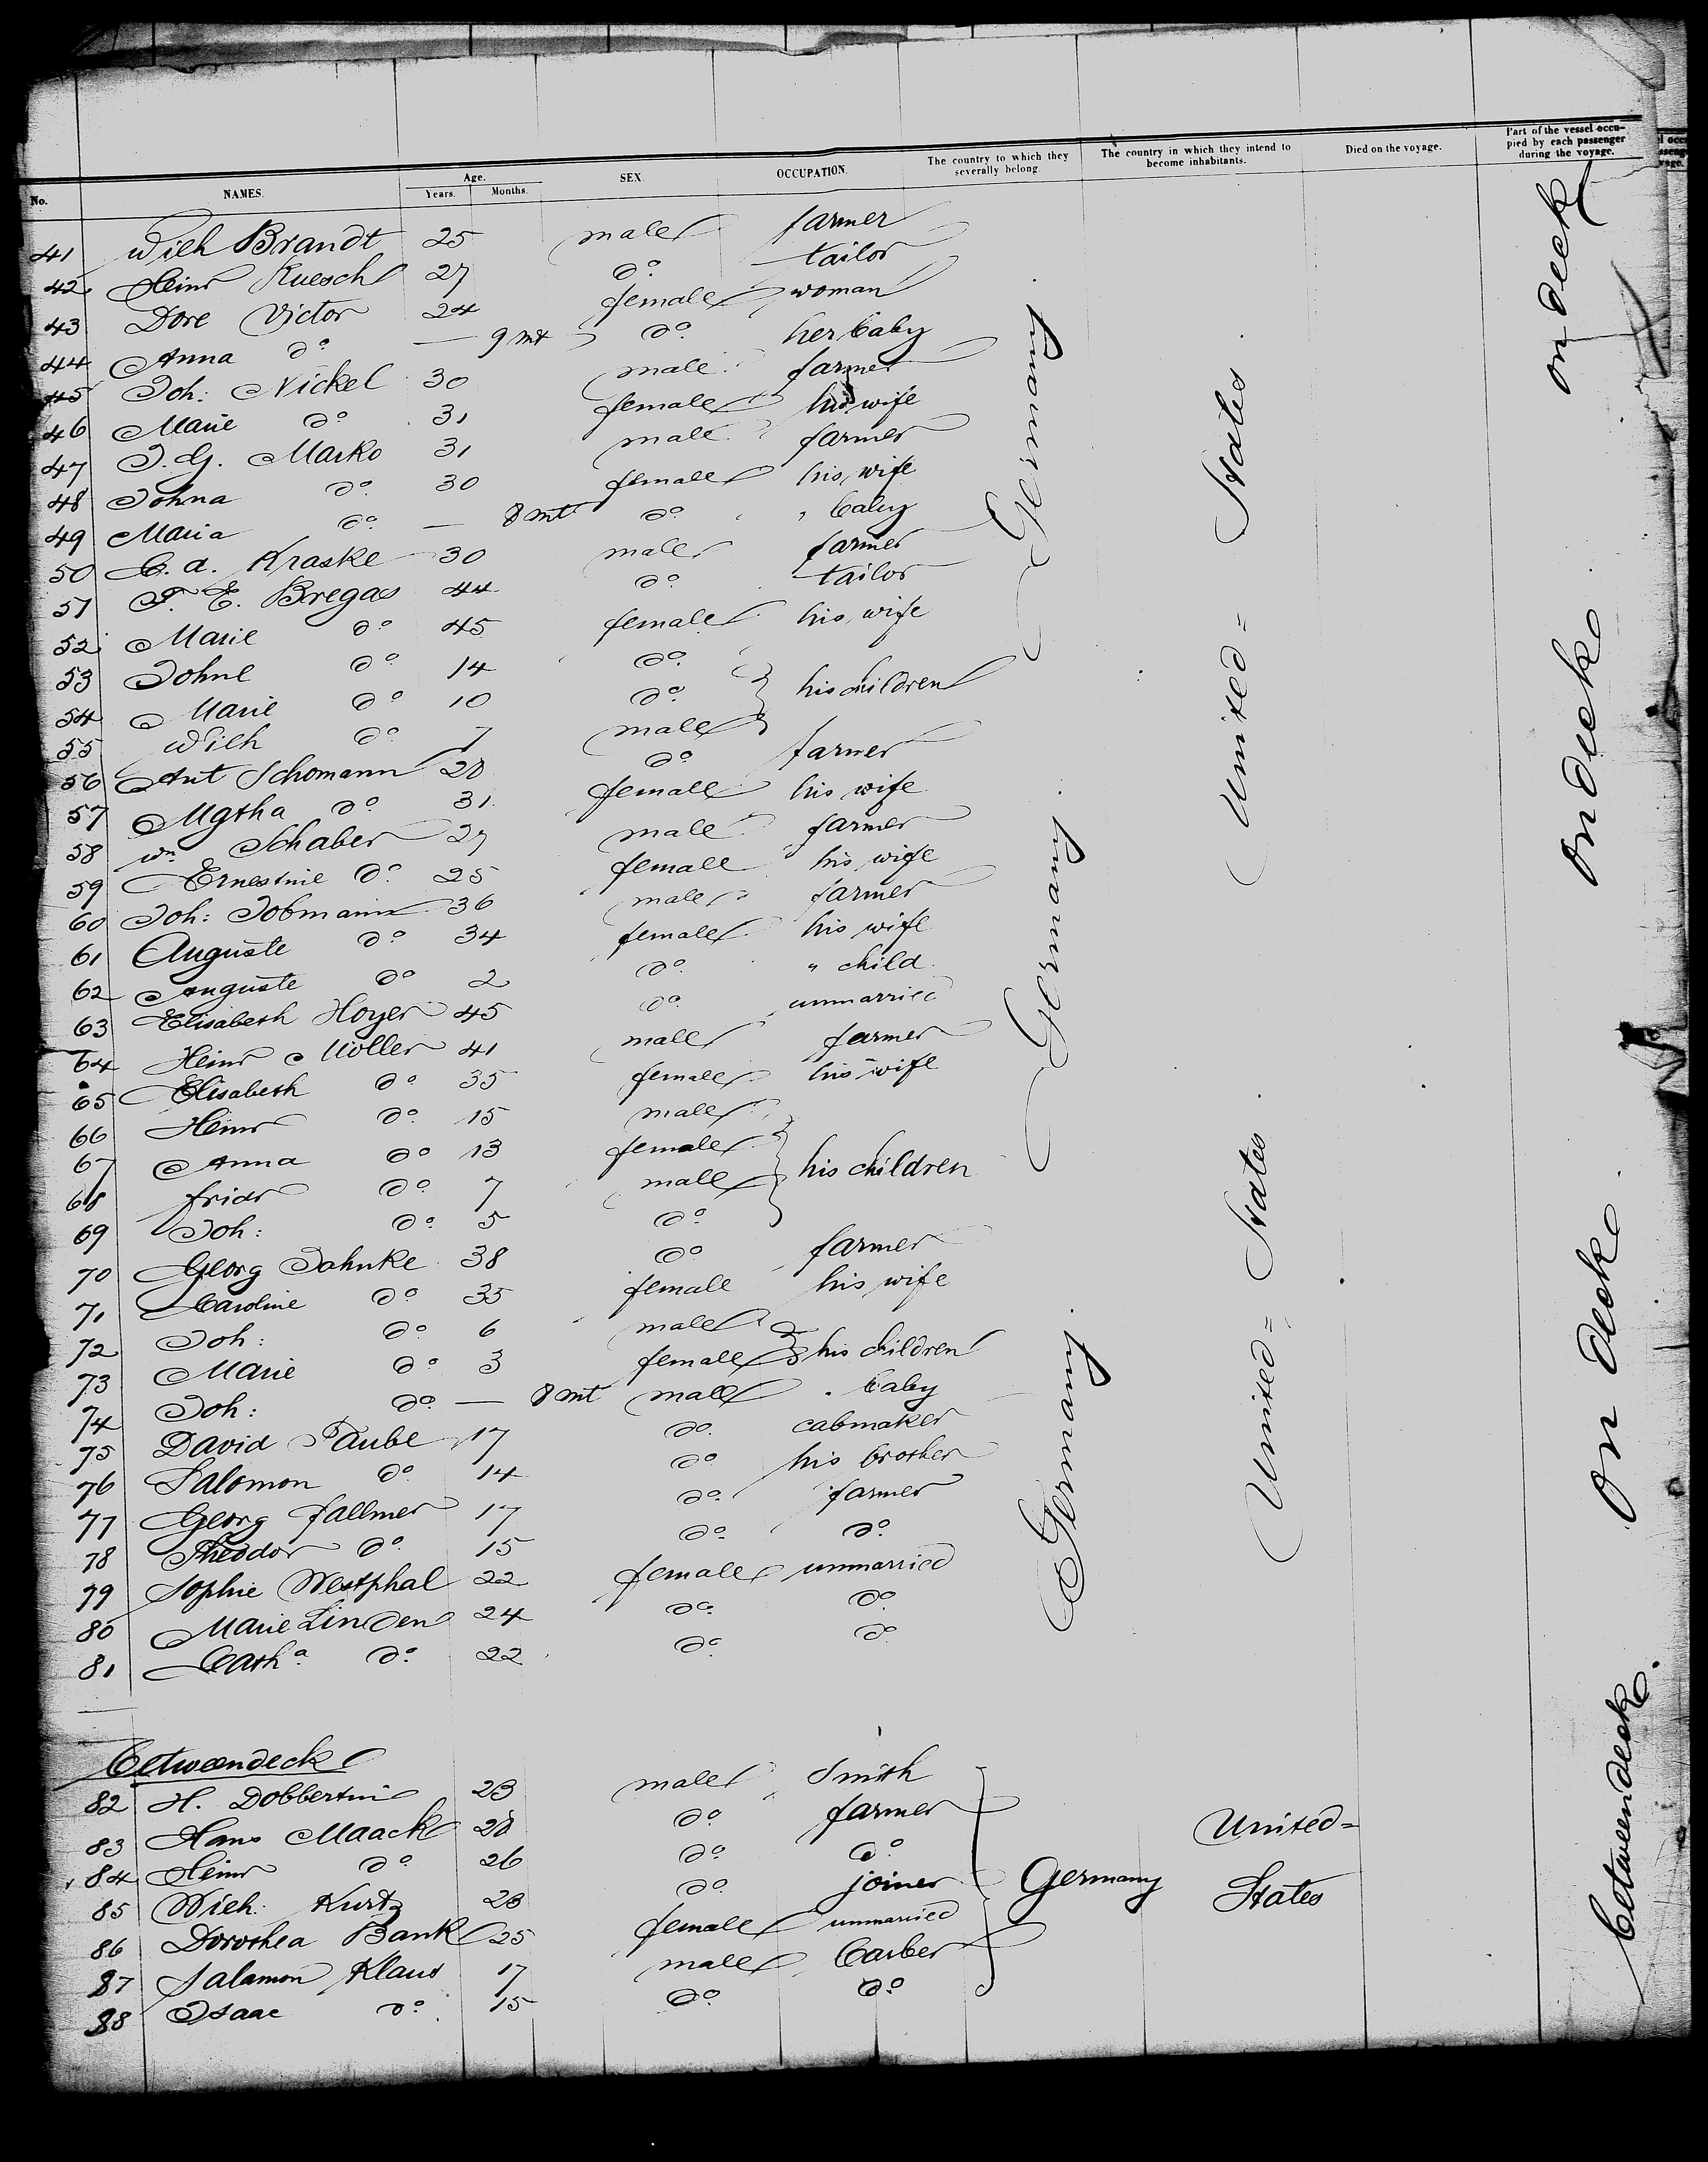 No. NAMES. Age. Years. Months. SEX. OCCUPATION. The country to which they severally belong. The country in which they intend to become inhabitants. Died on the voyage. Part of the vessel occupied by each passenger during the voyage.
41 Wilh Brandt 25 male farmer
42 Heinr Ruesch 27 do tailor
43 Dore Victor 24 female woman
44 Anna do — 9 mt do her baby
45 Joh: Nickel 30 male farmer
46 Marie do 31 female his wife
47 J. G. Marko 31 male farmer
48 Johna do 30 female his wife
49 Maria do — 8 mt do " baby
50 C. A. Kraske 30 male farmer
51 F. E. Bregas 44 do tailor
52 Marie do 45 female his wife
53 Johne do 14 do
54 Marie do 10 do his children
55 Wilh do 7 male
56 Ant Schomann 28 do farmer
57 Mgtha do 31 female his wife
58 Wm Schaber 27 male farmer
59 Ernestine do 25 female his wife
60 Joh: Jobmann 36 male farmer
61 Auguste do 34 female his wife
62 Auguste do 2 do " child
63 Elisabeth Hoyer 45 do unmarried
64 Heinr Möller 41 male farmer
65 Elisabeth do 35 female his wife
66 Heinr do 15 male
67 Anna do 13 female
68 Fridr do 7 male his children
69 Joh: do 5 do
70 Georg Jahnke 38 do farmer
71 Caroline do 35 female his wife
72 Joh: do 6 male
73 Marie do 3 female his children
74 Joh: do — 8 mt male " baby
75 David Taube 17 do cabmaker
76 Salomon do 14 do his brother
77 Georg Fallmer 17 do farmer
78 Theodor do 15 do do
79 Sophie Westphal 22 female unmarried
80 Marie Linden 24 do do
81 Catha do 22 do do
Germany
Germany
Germany
United=States
United=States
on deck
on deck
on deck
Betweendeck
82 H. Dobbertin 23 male Smith
83 Hans Maack 28 do farmer
84 Heinr do 26 do do
85 Wilh: Kurtz 23 do joiner
86 Dorothea Bank 25 female unmarried
87 Salamon Klaus 17 male barber
88 Isaac do 15 do do
Germany
United=
States
betweendeck.